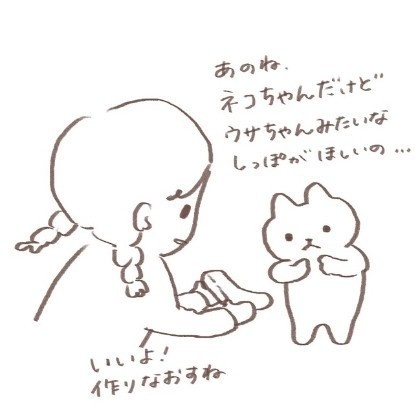 あのね、
ネコちゃんだけど
ウサちゃんみたいな
しっぽがほしいの…
いいよ!
作りなおすね